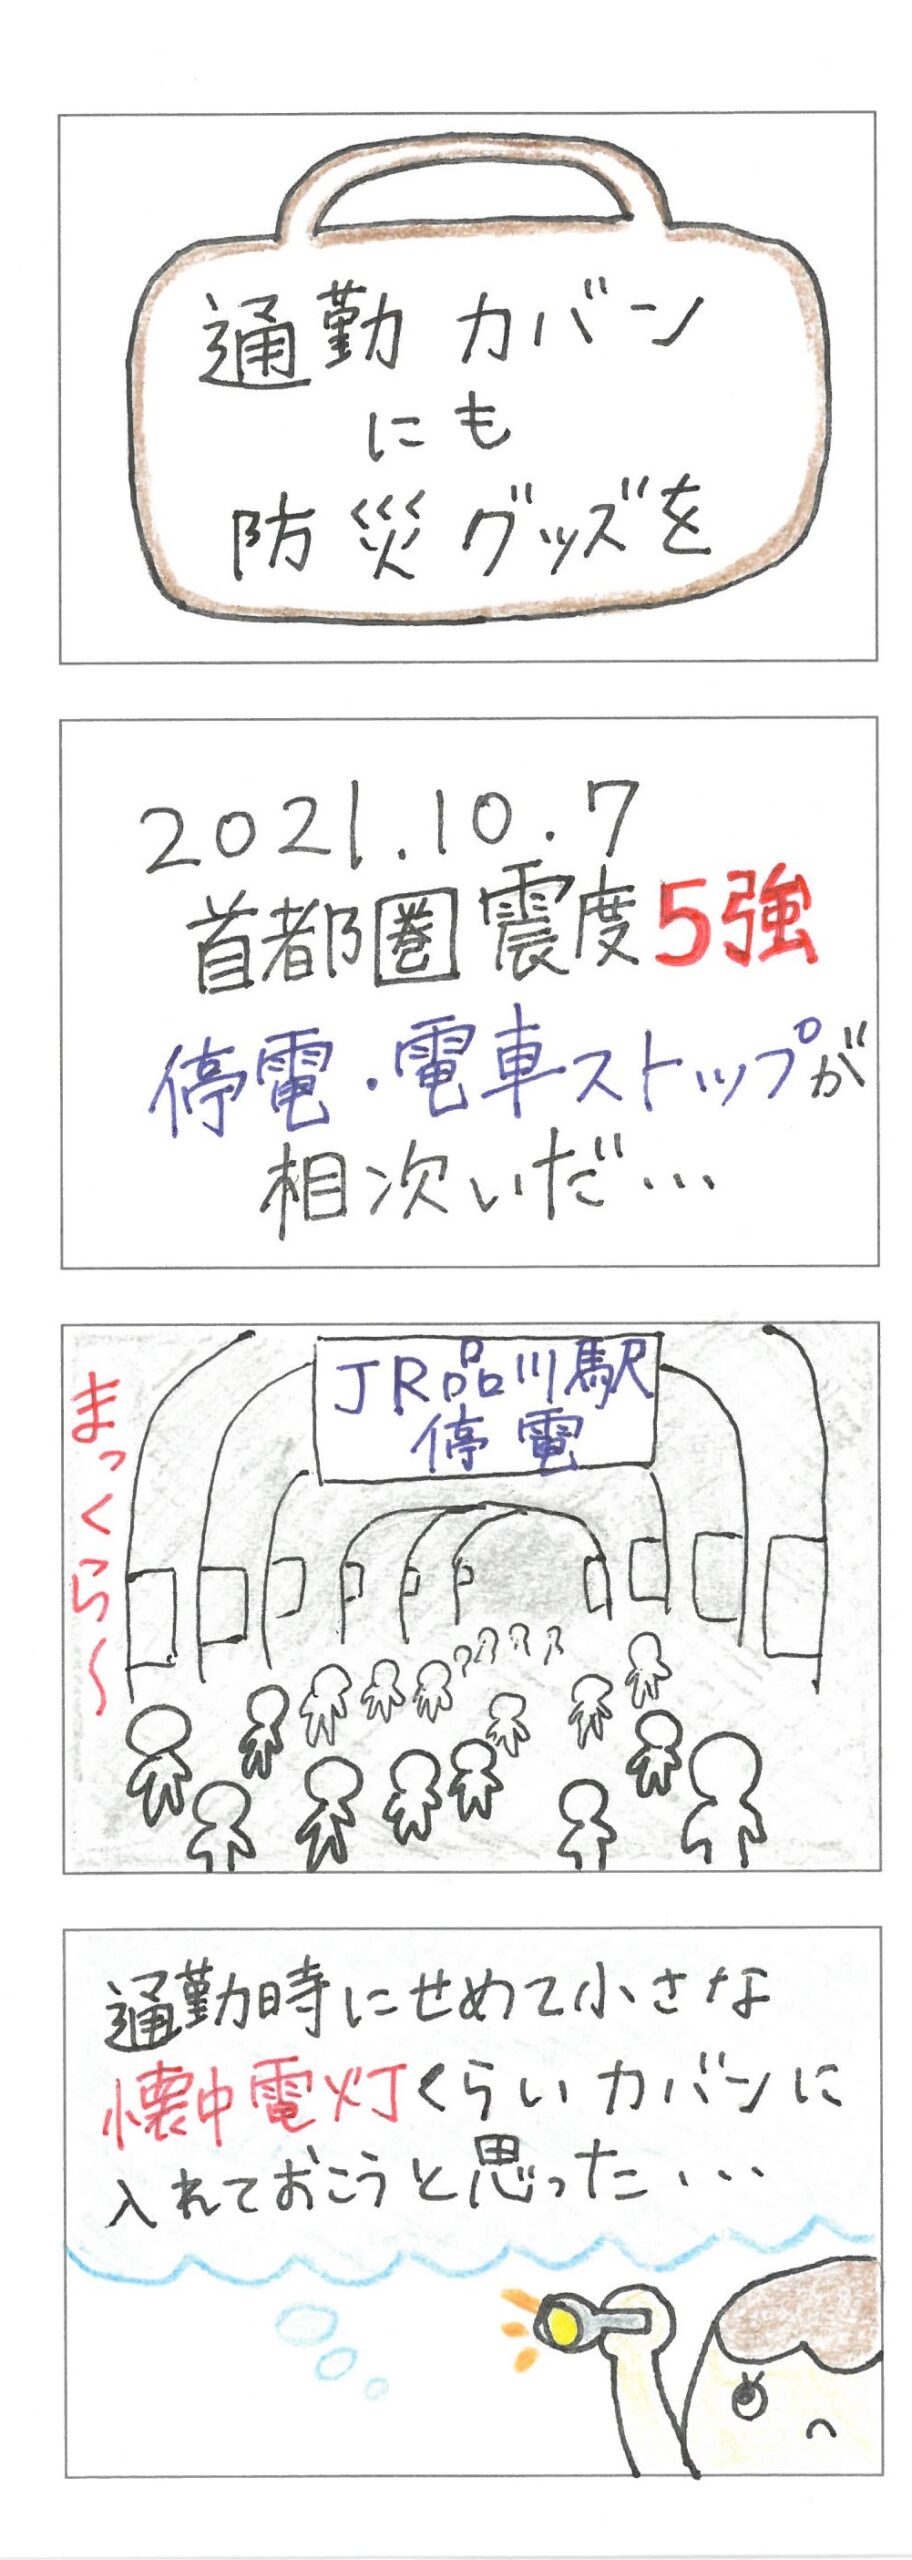 通勤カバン
にも
防災グッズを
2021.10.7
首都圏震度5強
停電・電車ストップが
相次いだ...
JR品川駅
停電
まっくら〜
通勤時にせめて小さな
懐中電灯くらいカバンに
入れておこうと思った...